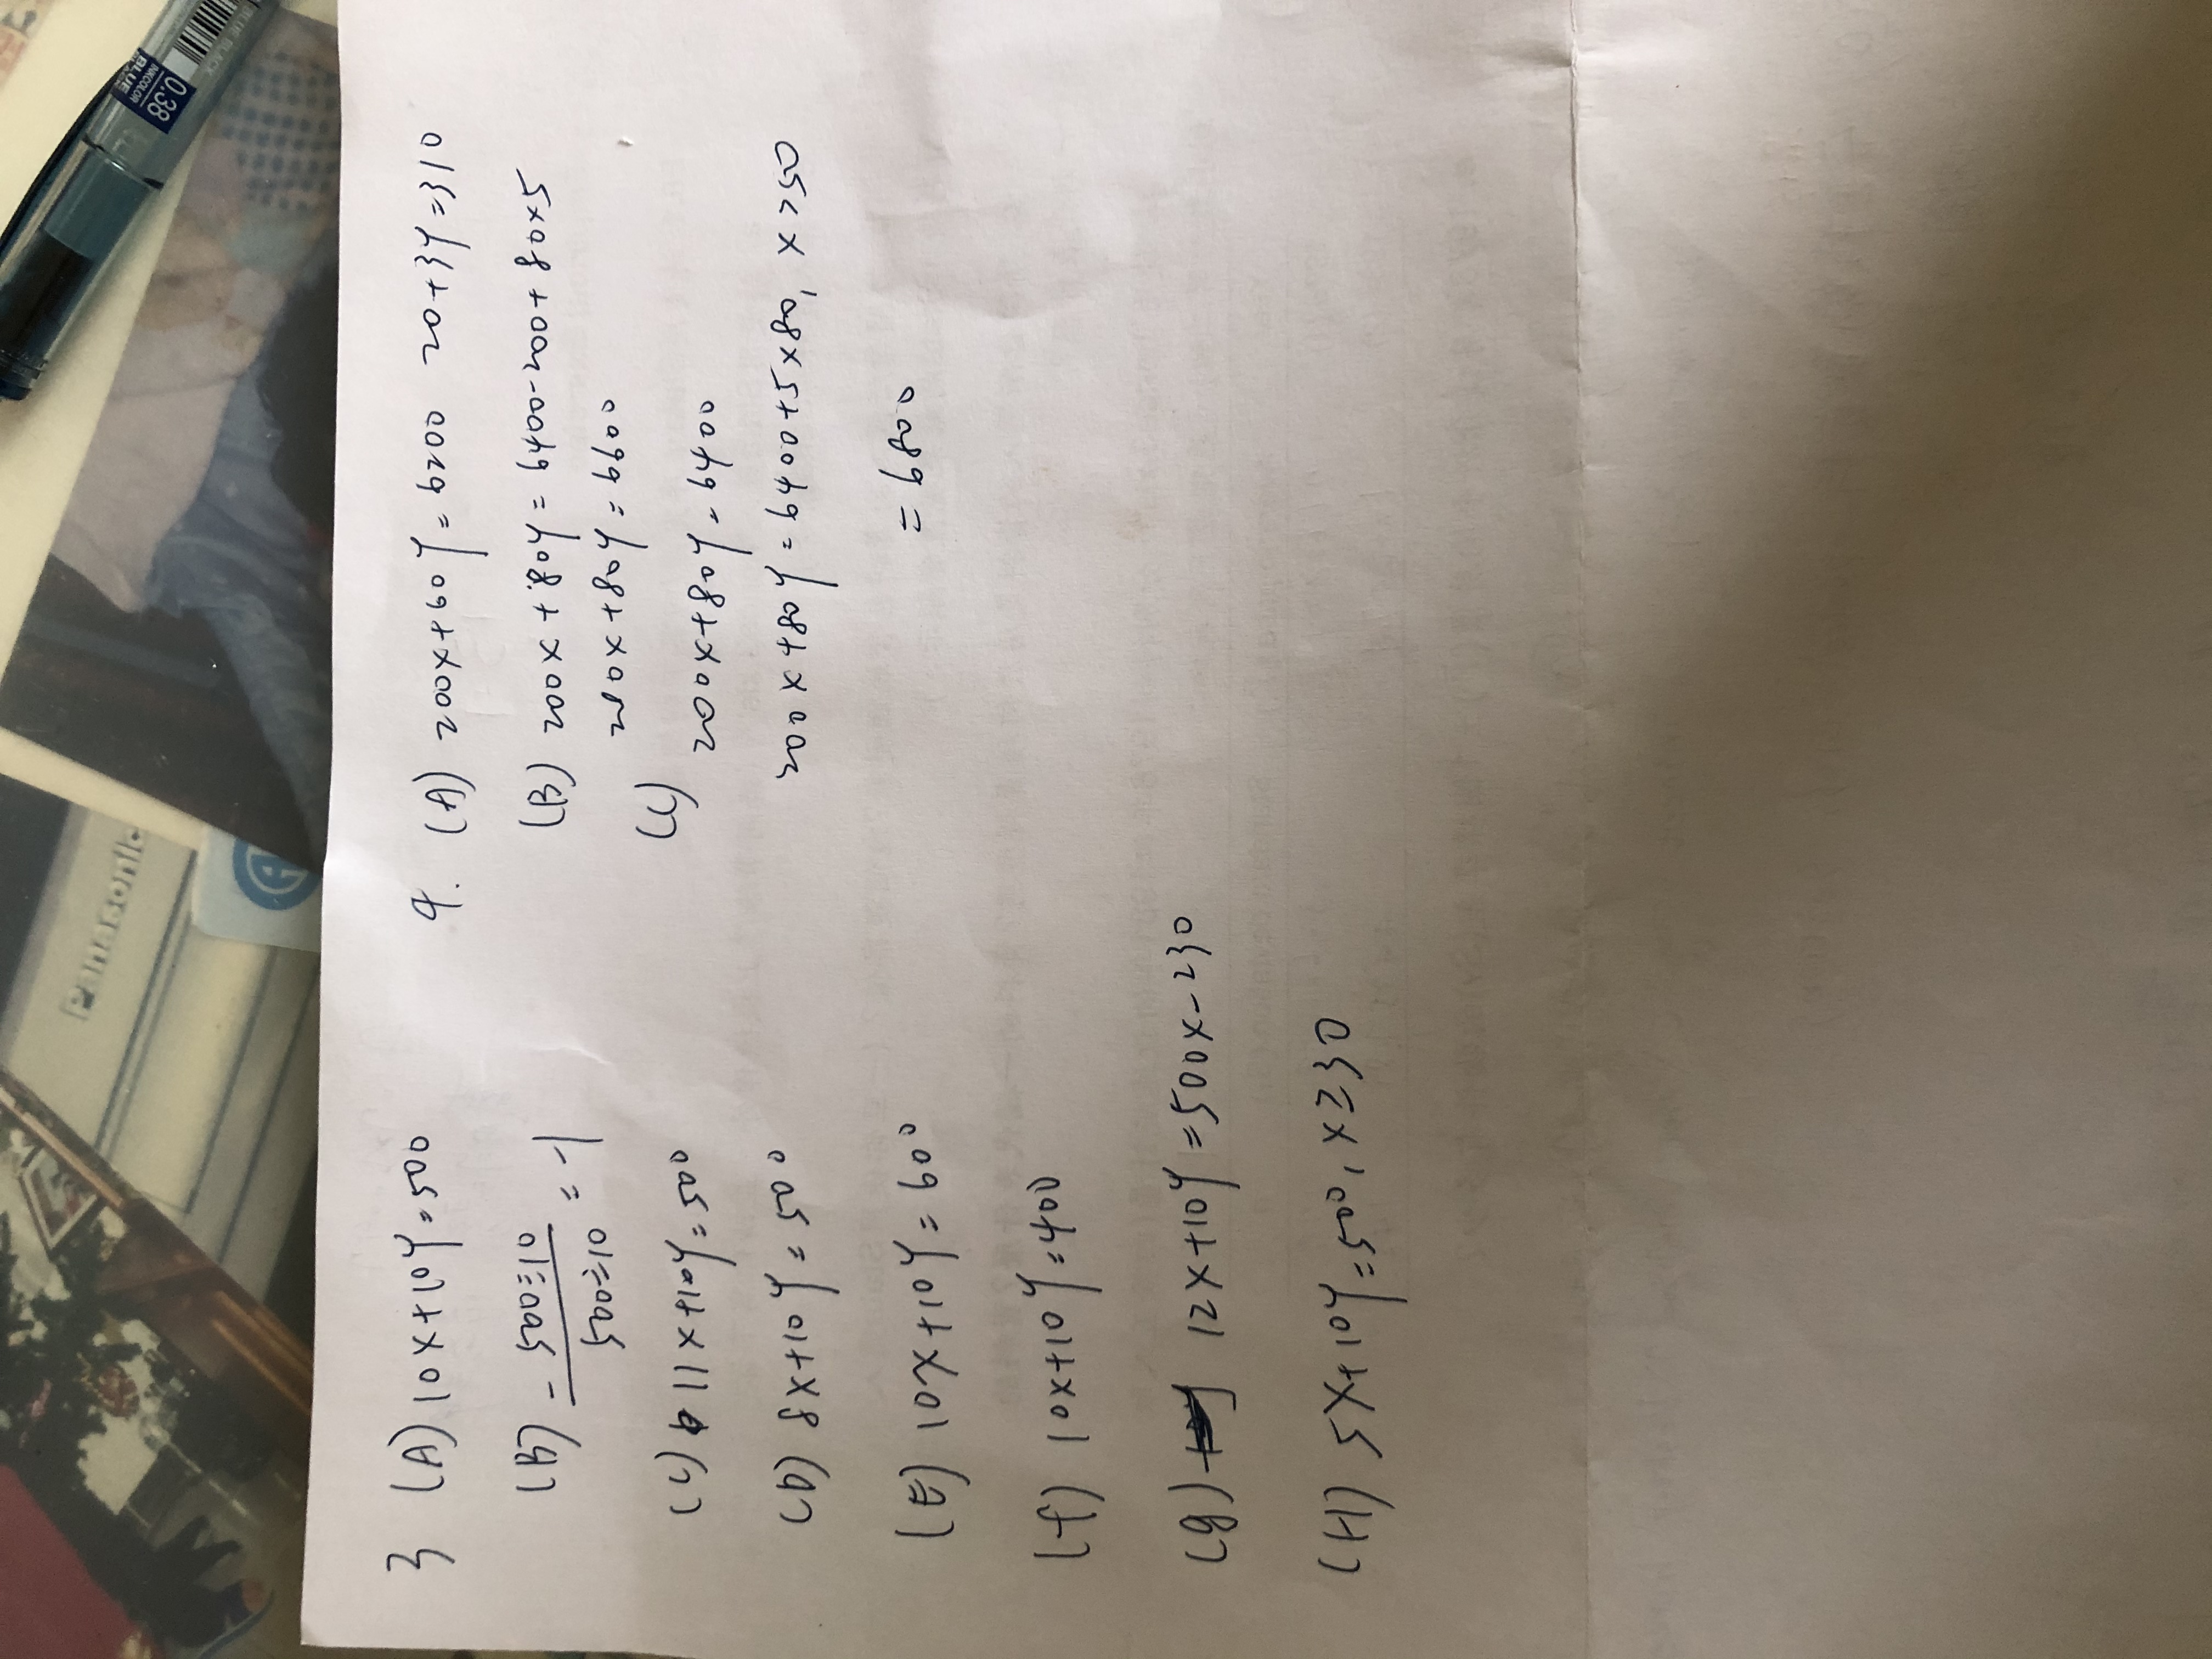 Panasonic
0.38
INKCOLOR
BLUE
3 (A) 10x+10y=500
(B) - 500÷10 / 500÷10 = -1
(C) 11x+10y=500
(D) 8x+10y=500
(E) 10x+10y=600
(f) 10x+10y=400
(g) 12x+10y=500x-230
(H) 5x+10y=500, x≥30
4. (A) 200x+60y=6200 20+3y=310
(B) 200x+80y=6400-200+80×5
200x+80y=6600
(C)
200x+80y=6400
200x+80y=6400+5×80, x>50
=6800